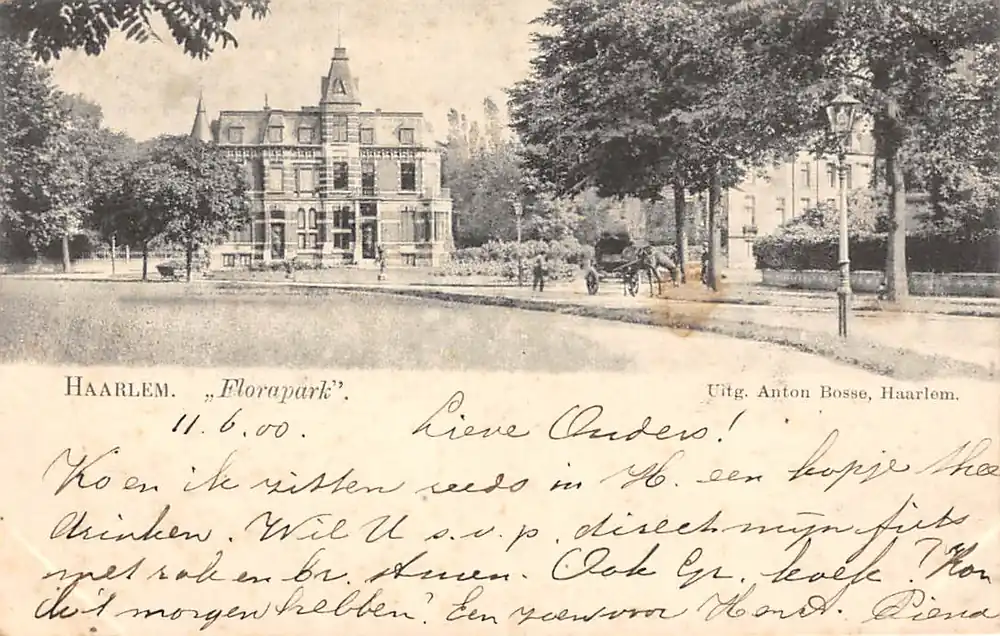 HAARLEM. „Florapark”.
Uitg. Anton Bosse, Haarlem.
11.6.00. Lieve Ouders!
Ko en ik zitten reeds in H. een kopje thee
drinken. Wil U s.v.p. direct mijn fiets
met rok en br. sturen. Ook Gr. koek? Kan
ik 't morgen hebben? Een zoen voor